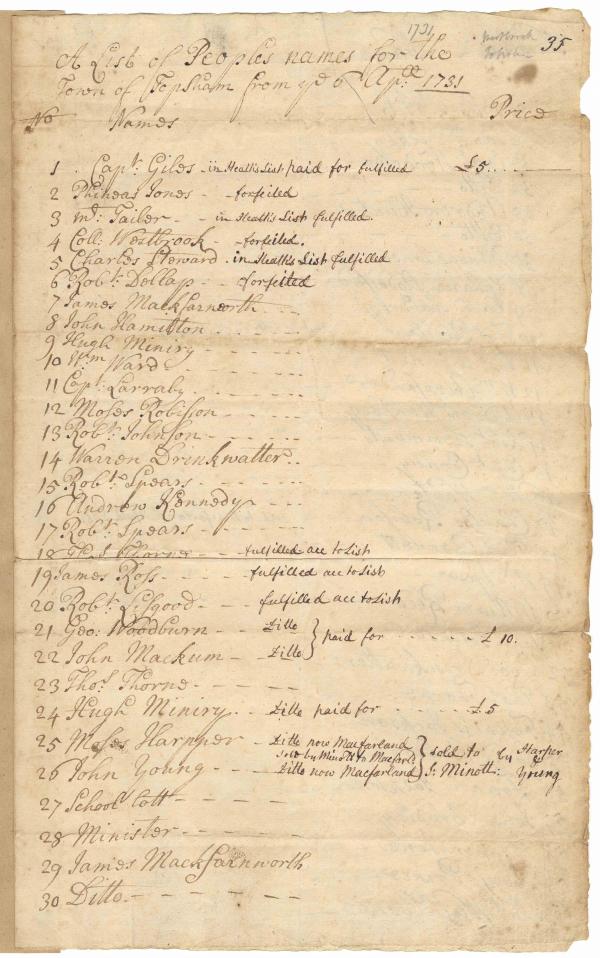 1731
35
A List of Peoples names for the
Town of Topsham from ye 6 Apll 1731
No Names Price
1 . Capt: Giles - in Heath's List paid for fulfilled £5....
2 Phineas Jones - forfeited
3 Mr: Tailer - - in Heath's List fulfilled.
4 Coll: Westbrook - forfeited.
5 Charles Steward . in Heath's List fulfilled
6 Robt: Dollap - - forfeited
7 James Mackfarnworth - - -
8 John Hamilton - - - -
9 Hugh Miniry - - - - -
10 Wm Ward - - - - -
11 Capt: Larraby - - - -
12 Moses Robison - - - -
13 Robt: Johnson - - - -
14 Warren Drinkwatter..
15 Robt: Spears - - - -
16 Andrew Kennedy - - -
17 Robt: Spears - - - -
18 Thos Thorne - - - fulfilled acc to List
19 James Ross - - - - fulfilled acc to List
20 Robt: Lisgood - - - fulfilled acc to List
21 Geo: Woodburn - - Ditto } paid for - - - - - - £ 10.
22 John Mackum - - Ditto
23 Thos Thorne - - - -
24 Hugh Miniry - - Ditto paid for - - - - - £5
25 Moses Harpper - Ditto now Macfarland } sold to by Harper
sold by Minott to Macfarld
26 John Young - - - Ditto now Macfarland S: Minott: & Young
27 School Lott - - - -
28 Minister - - - - -
29 James Mackfarnworth
30 Ditto - - - - - - -